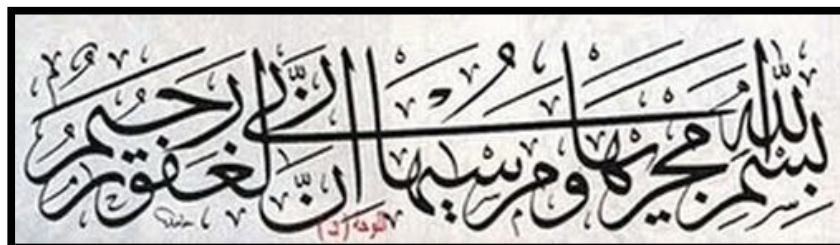 بسم الله مجريها ومرسيها إنّ ربّي لغفور رحيم
اللوحه (د)